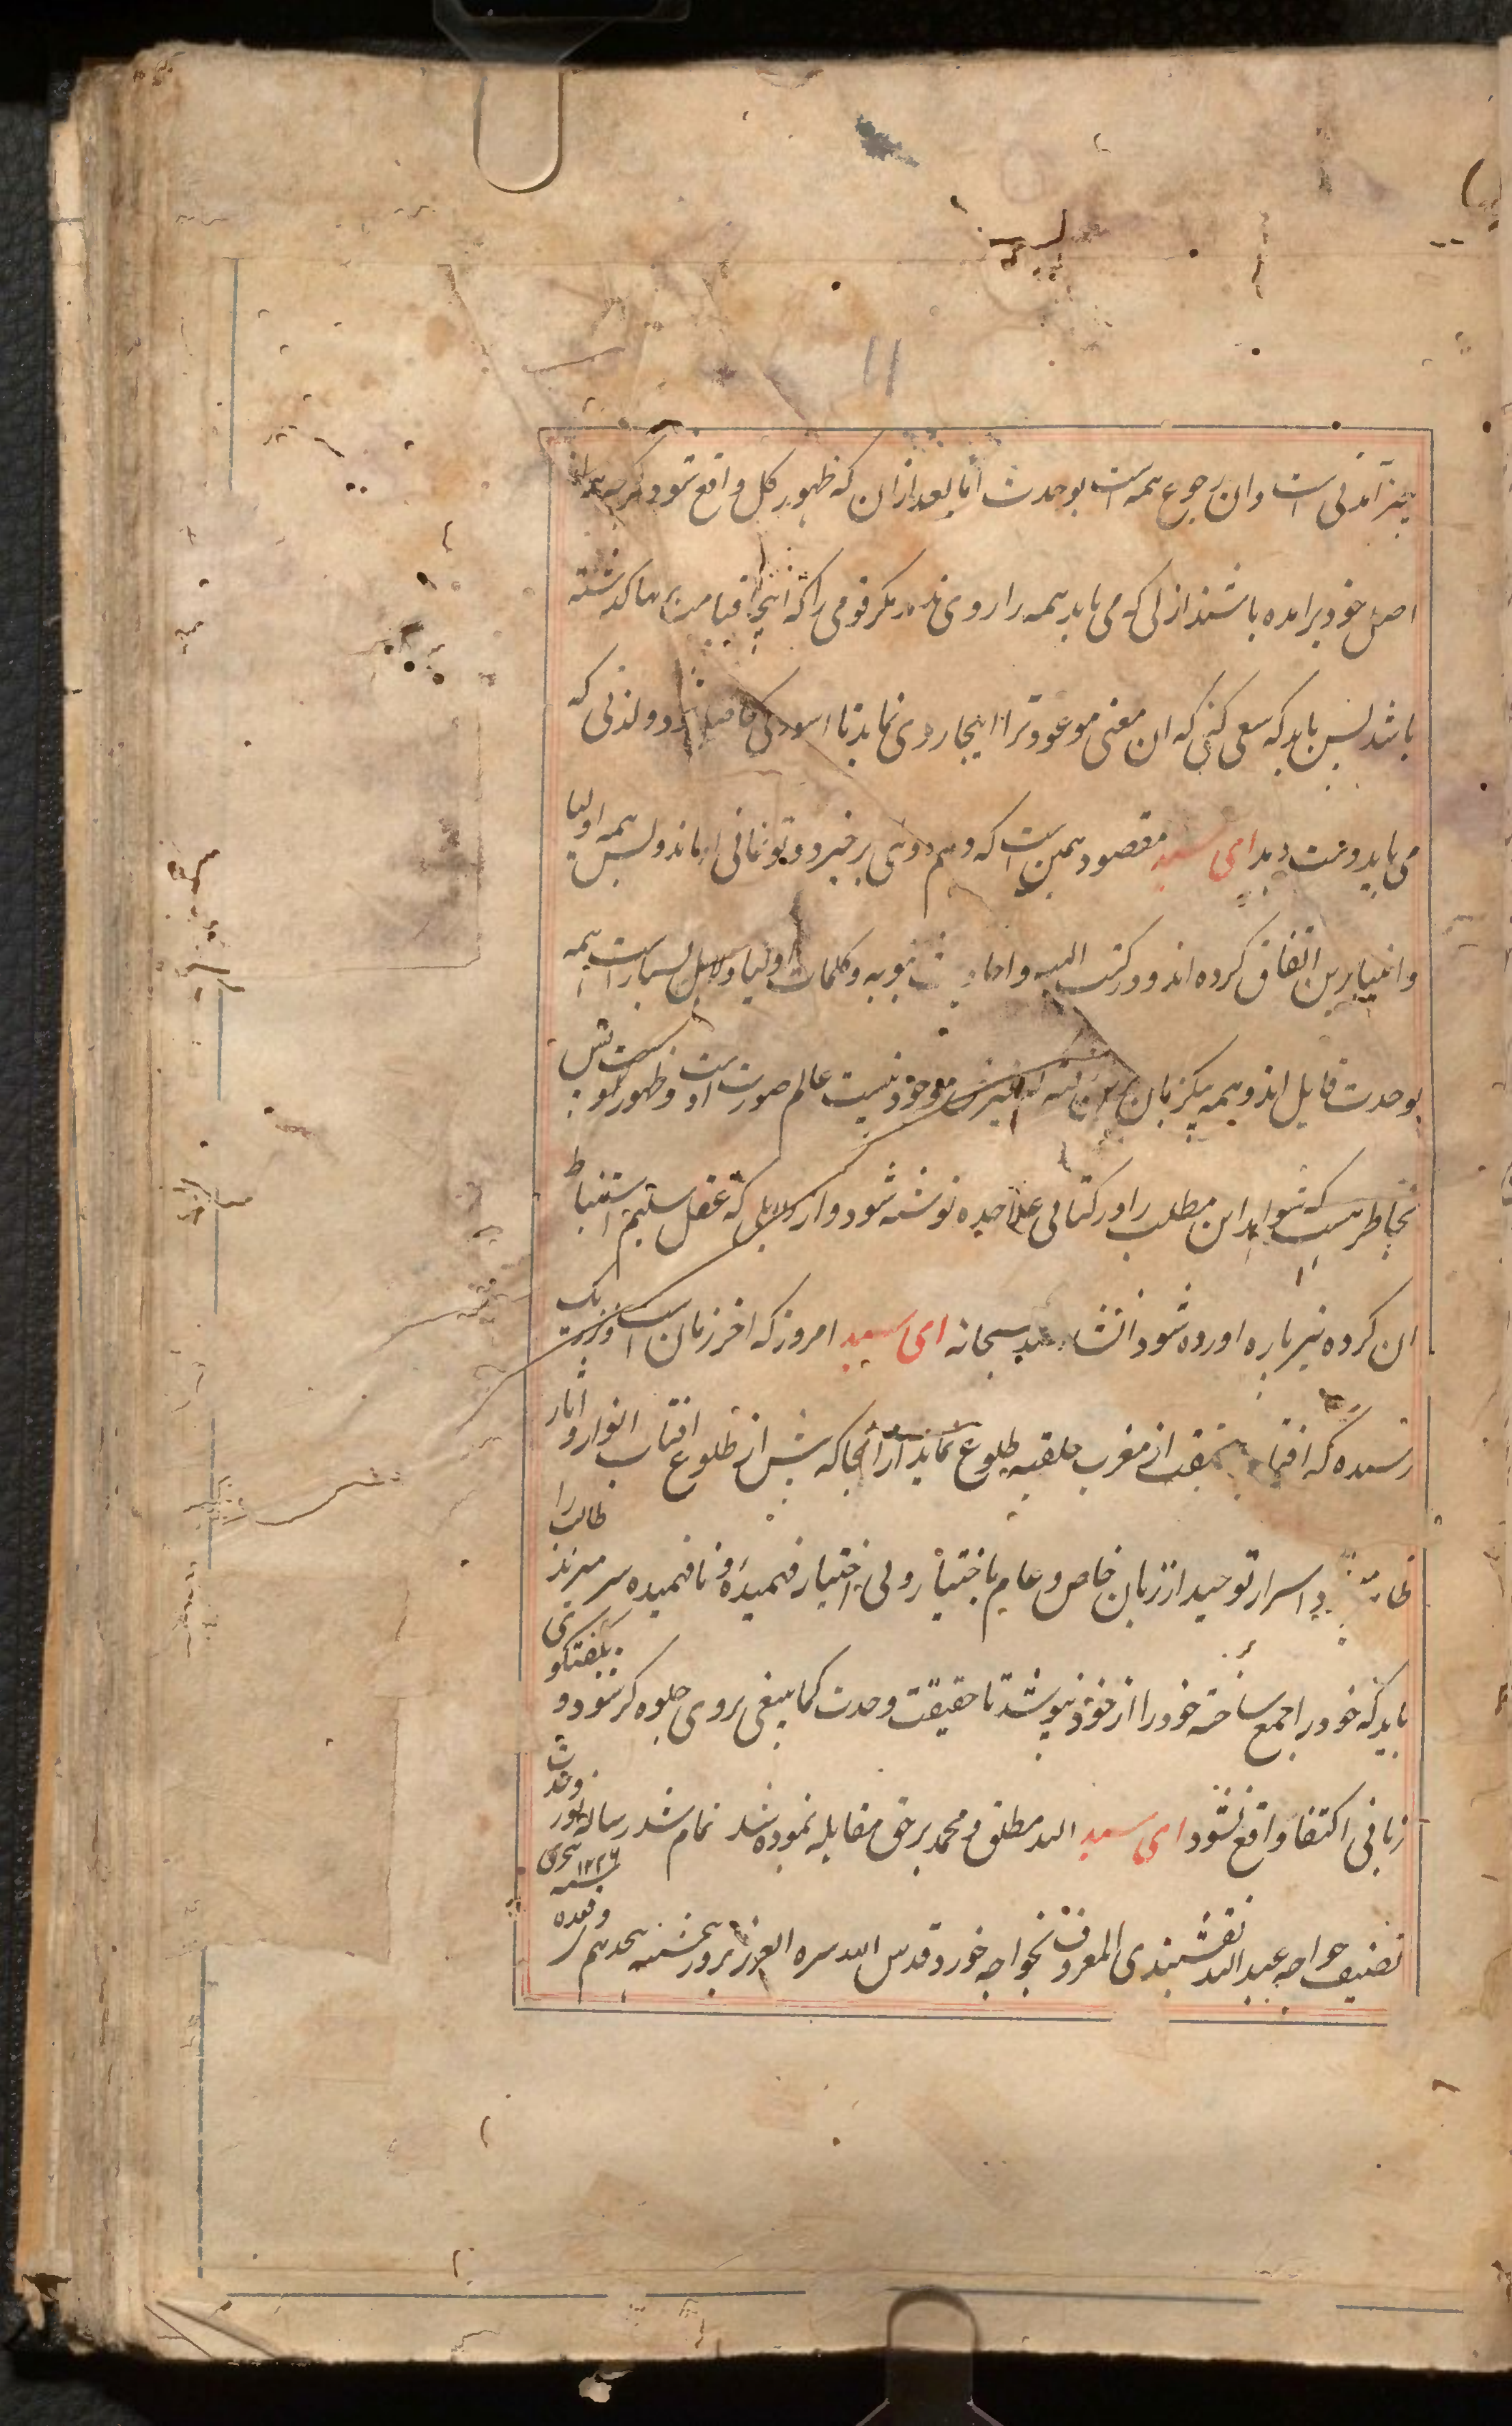 نیز آمدنی است و ان رجوع همه است بوحدت اما بعد ازان که ظهور کل واقع شود و
اصل خود برامده باشند از لی که می باید همه را روی مگر قومی را که اینجا قیامت بر انها گذشته
باشد پس باید که سعی کنی که ان معنی موعود ترا اینجا روی نماید تا اسودگی دو لذتی که
می باید دست دهد ای سید مقصود همین است که وهم دوی برخیزد و تو نمانی او ماند و بس همه اولیا
و انبیا برین اتفاق کرده اند و در کتب الهیه و احادیث نبویه و کلمات اولیا دلایل بسیار است همه
بوحدت قایل اند و همه یکزبان برین غیرش موجود نیست عالم صورت اوست و ظهور اوست پس
بخاطر هست که شواهد این مطلب را در کتابی علاحده نوشته شود و از دلایلی که عقل سلیم استنباط
ان کرده نیز پاره اورده شود انشاء الله سبحانه ای سید امروز که اخر زمان است و نزدیک
رسیده که افتاب حقیقت از مغرب خلقیه طلوع نماید ازانجا که پیش از طلوع افتاب انوار و اثار
ظاهر اسرار توحید از زبان خاص و عام باختیار و بی اختیار فهمیده و نا فهمیده سر میزند طالب را
باید که خود را جمع ساخته خود را از خود نپوشد تا حقیقت وحدت کما ینبغی بروی جلوه گر شود و بگفتگوی
زبانی اکتفا واقع نشود ای سید الله مطلق و محمد برحق مقابله نموده شد تمام شد رساله نور وحدت
تصنیف خواجه عبید الله نقشبندی المعروف بخواجه خورد قدس الله سره العزیز بروز پنجشنبه هجدهم ذیقعده ۱۲۲۶ هجری